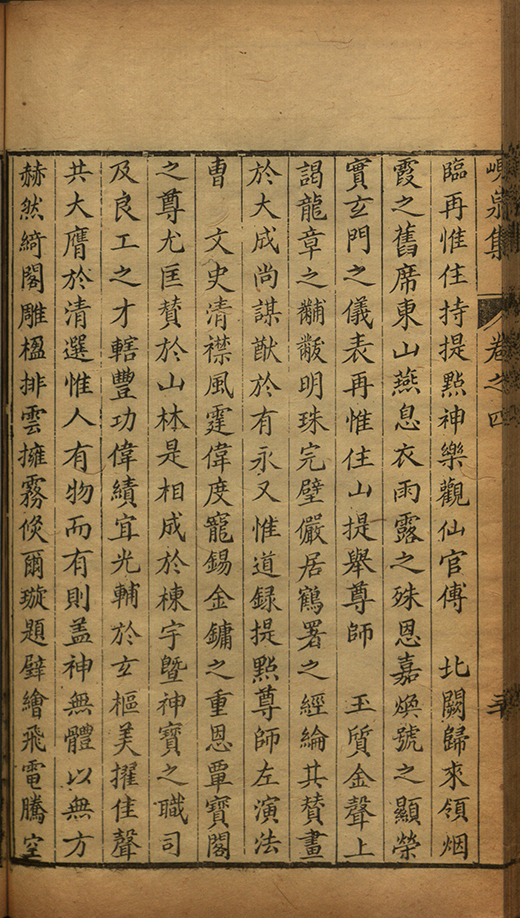 峴泉集 卷之四
臨再惟住持提㸃神樂觀仙官傅 北闕歸來領烟
霞之舊席東山燕息衣雨露之殊恩嘉煥號之顯榮
實玄門之儀表再惟住山提舉尊師 玉質金聲上
謁龍章之黼黻明珠完璧儼居鶴署之經綸其賛畫
於大成尚謀猷於有永又惟道録提㸃尊師左演法
曹 文史清襟風霆偉度寵錫金鏞之重恩覃寶閣
之尊尤匡賛於山林是相成於棟宇曁神寶之職司
及良工之才轄豐功偉績宜光輔於玄樞美擢佳聲
共大膺於清選惟人有物而有則盖神無體以無方
赫然綺閣雕楹排雲擁霧倐爾璇題璧繪飛電騰空